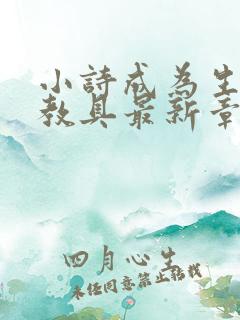 小詩成為生
教具最新章
四月心生
未经同意禁止转载